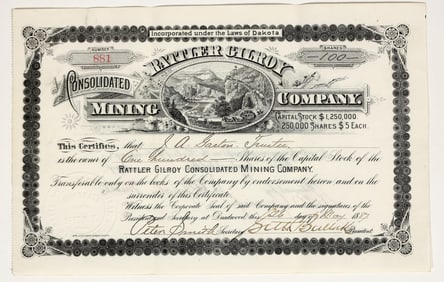 Incorporated under the Laws of Dakota
NUMBER
881
RATTLER GILROY
SHARES
100
CONSOLIDATED
MINING COMPANY.
CAPITAL STOCK $1,250,000.
250,000 SHARES $5 EACH.
This Certifies, that J. A. Gaston, Trustee
is the owner of One Hundred Shares of the Capital Stock of the
RATTLER GILROY CONSOLIDATED MINING COMPANY.
Transferable only on the books of the Company by endorsement hereon and on the
surrender of this Certificate.
Witness the Corporate Seal of said Company and the signatures of the
President and Secretary at Deadwood this day of May 1887
Peter Smith Secretary Seth Bullock President